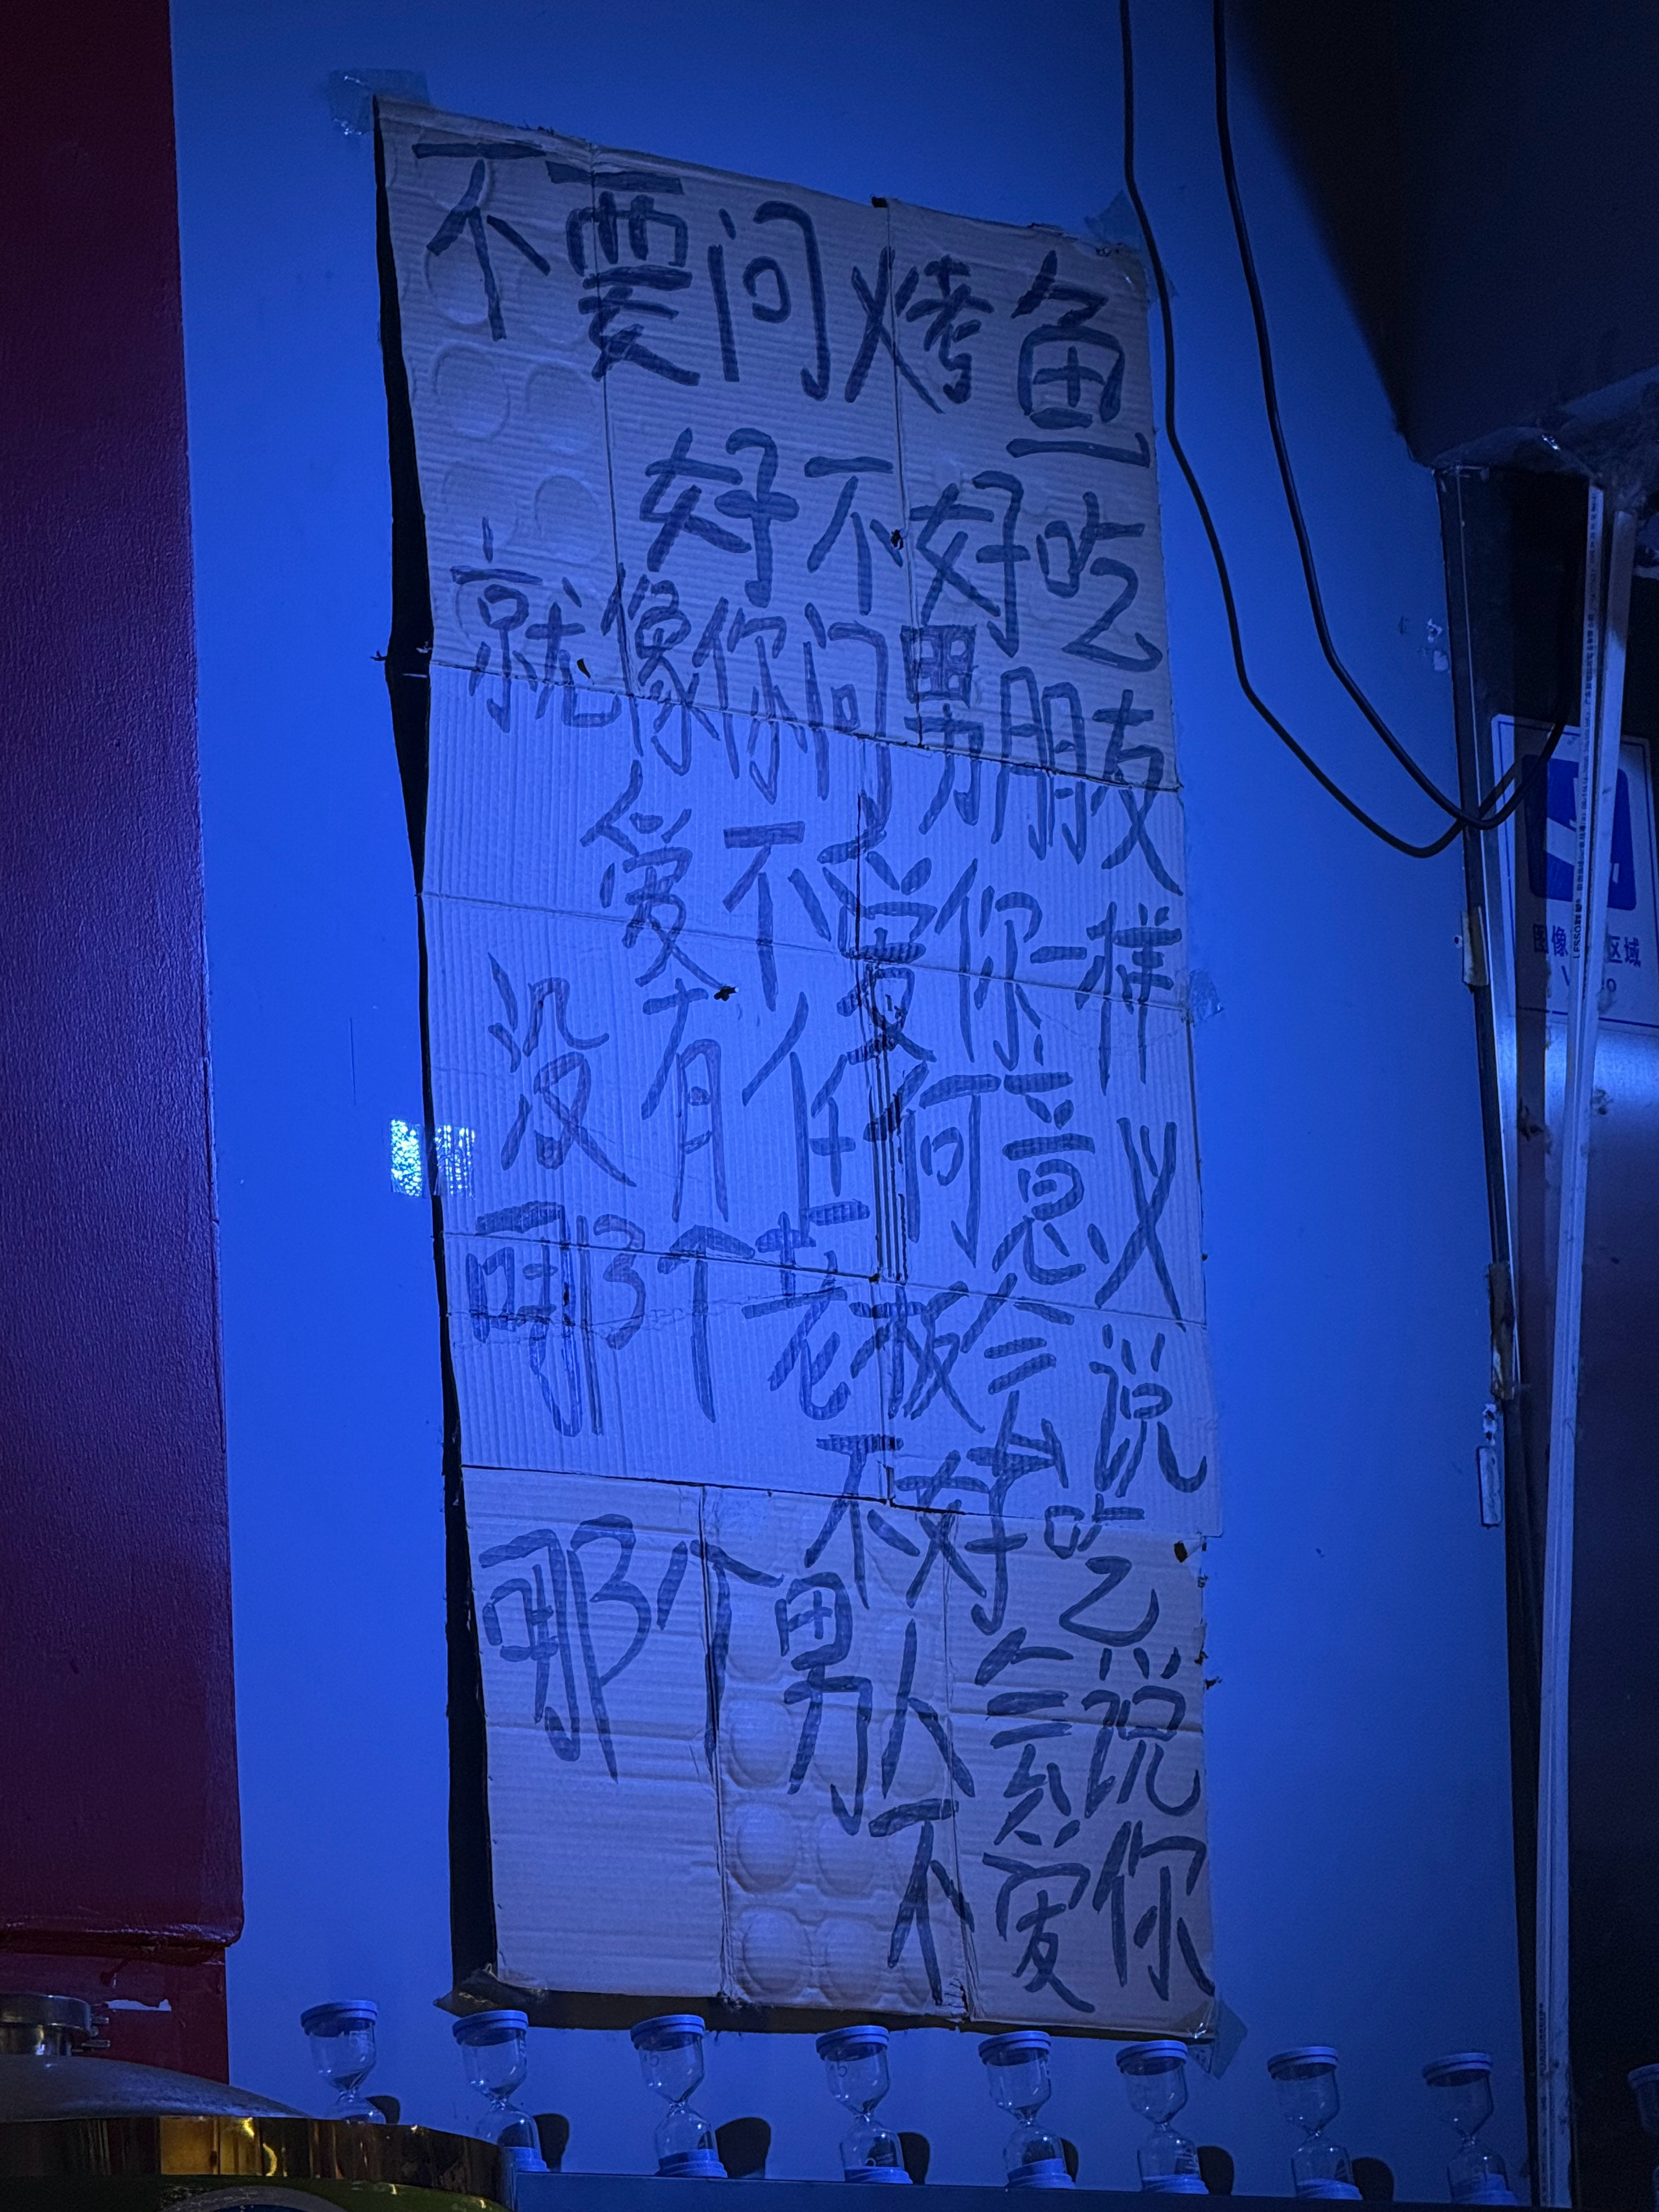 不要问烤鱼
好不好吃
就像你问男朋友
爱不爱你一样
没有任何意义
哪个老板会说
不好吃
哪个男人会说
不爱你
区域